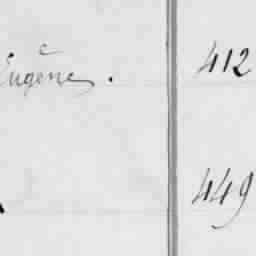 Eugène. 412
449